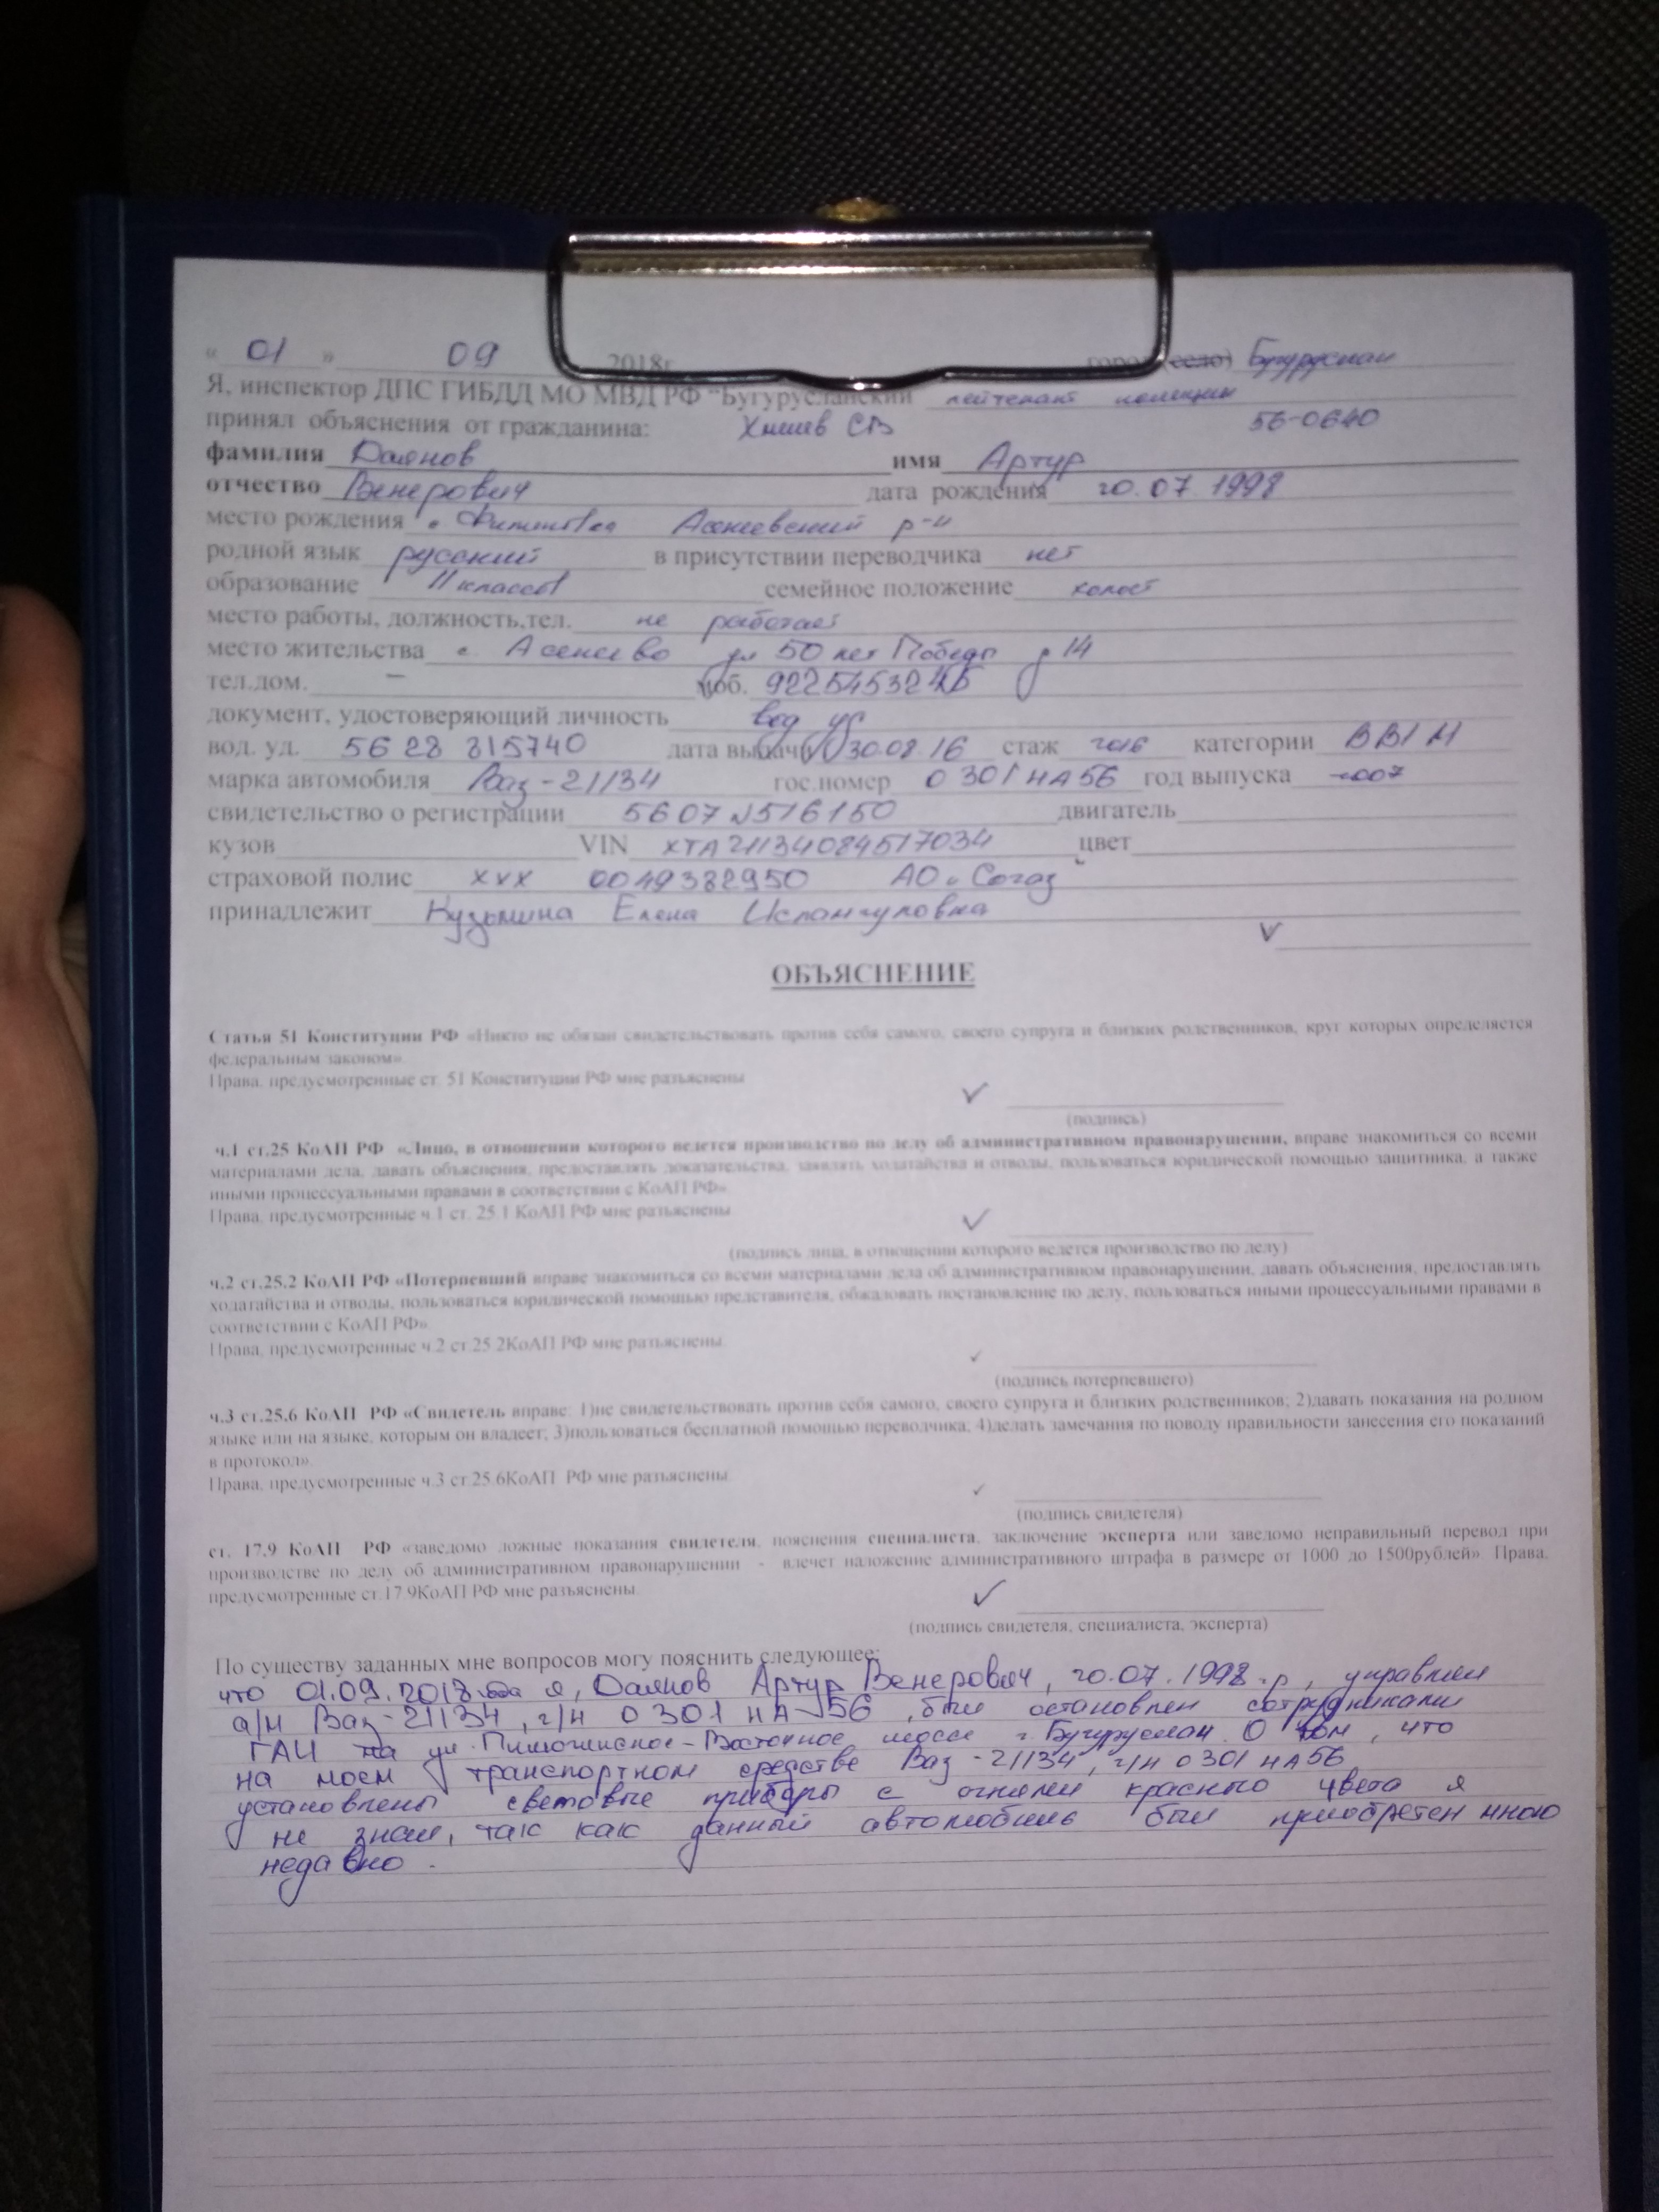 « 01 » 09 2018г. город (село) Бугуруслан
Я, инспектор ДПС ГИБДД МО МВД РФ "Бугурусланский лейтенант полиции
принял объяснения от гражданина: СВ 56-0640
фамилия Даянов имя Артур
отчество Венерович дата рождения 20.07.1998
место рождения с. Асекеевский р-н
родной язык русский в присутствии переводчика нет
образование 11 классов семейное положение холост
место работы, должность,тел. не работает
место жительства с. Асекеево ул 50 лет Победы д 14
тел.дом. – моб.
документ, удостоверяющий личность вод уд
вод. уд. 56 28 815740 дата выдачи 30.08.16 стаж 2016 категории В В1 М
марка автомобиля Ваз-21134 гос.номер О 301 НА56 год выпуска 2007
свидетельство о регистрации 5607 №516150 двигатель
кузов VIN ХТА21134084517034 цвет
страховой полис ХХХ 0049382950 АО Согаз
принадлежит Кузьмина Елена Ислангуловна
ОБЪЯСНЕНИЕ
Статья 51 Конституции РФ «Никто не обязан свидетельствовать против себя самого, своего супруга и близких родственников, круг которых определяется
федеральным законом»
Права, предусмотренные ст. 51 Конституции РФ мне разъяснены
(подпись)
ч.1 ст.25 КоАП РФ «Лицо, в отношении которого ведется производство по делу об административном правонарушении, вправе знакомиться со всеми
материалами дела, давать объяснения, предоставлять доказательства, заявлять ходатайства и отводы, пользоваться юридической помощью защитника, а также
иными процессуальными правами в соответствии с КоАП РФ»
Права, предусмотренные ч.1 ст. 25.1 КоАП РФ мне разъяснены
(подпись лица, в отношении которого ведется производство по делу)
ч.2 ст.25.2 КоАП РФ «Потерпевший вправе знакомиться со всеми материалами дела об административном правонарушении, давать объяснения, предоставлять
ходатайства и отводы, пользоваться юридической помощью представителя, обжаловать постановление по делу, пользоваться иными процессуальными правами в
соответствии с КоАП РФ»
Права, предусмотренные ч.2 ст.25.2КоАП РФ мне разъяснены
(подпись потерпевшего)
ч.3 ст.25.6 КоАП РФ «Свидетель вправе: 1)не свидетельствовать против себя самого, своего супруга и близких родственников; 2)давать показания на родном
языке или на языке, которым он владеет; 3)пользоваться бесплатной помощью переводчика; 4)делать замечания по поводу правильности занесения его показаний
в протокол».
Права, предусмотренные ч.3 ст.25.6КоАП РФ мне разъяснены
(подпись свидетеля)
ст. 17.9 КоАП РФ «заведомо ложные показания свидетеля, пояснения специалиста, заключение эксперта или заведомо неправильный перевод при
производстве по делу об административном правонарушении - влечет наложение административного штрафа в размере от 1000 до 1500рублей». Права,
предусмотренные ст.17.9КоАП РФ мне разъяснены.
(подпись свидетеля, специалиста, эксперта)
По существу заданных мне вопросов могу пояснить следующее:
что 01.09.2018 я, Даянов Артур Венерович, 20.07.1998 г.р, управлял
а/м Ваз-21134, г/н О 301 НА 56, был остановлен сотрудниками
ГАИ на ул. Пилюгинское-Восточное шоссе г. Бугуруслан. О том, что
на моем транспортном средстве Ваз-21134, г/н О 301 НА56
установлены световые приборы с огнями красного цвета я
не знал, так как данный автомобиль был приобретен мною
недавно.